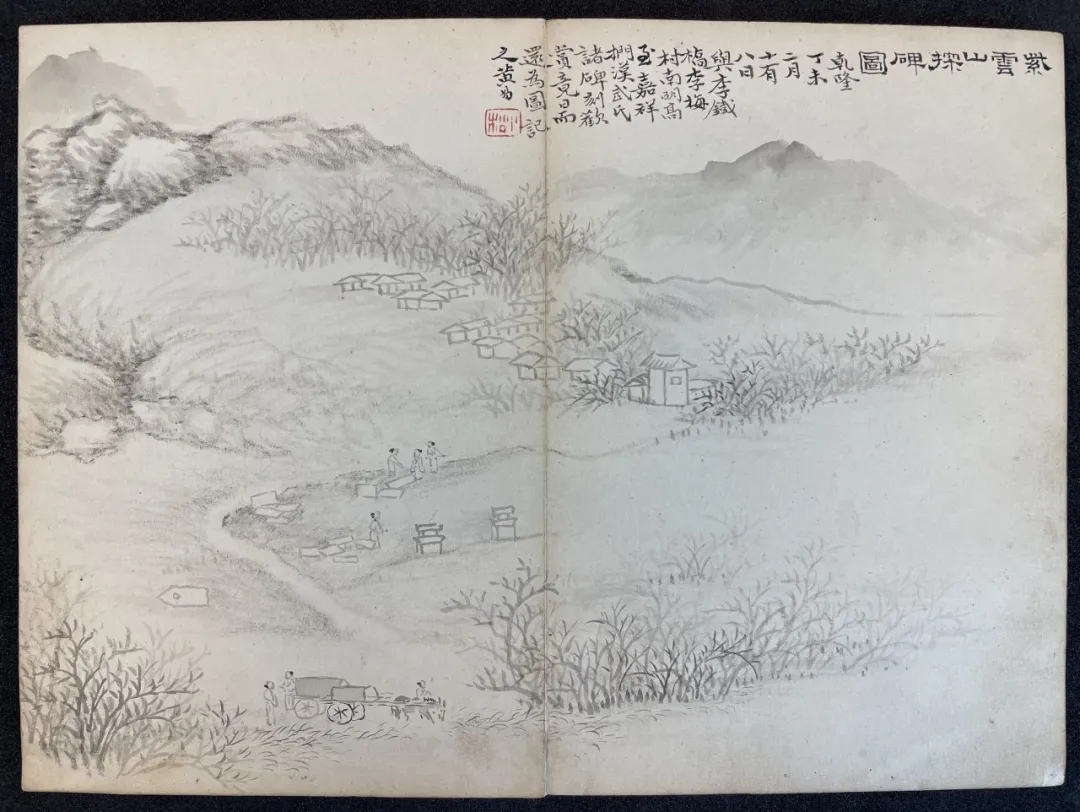 紫雲山探碑圖
乾隆
丁未
二月
十有
八日
與李鐵
橋李梅
村南明高
至嘉祥
捫漢武氏
諸碑刻歡
賞竟日而
還為圖記
之黃易
小松